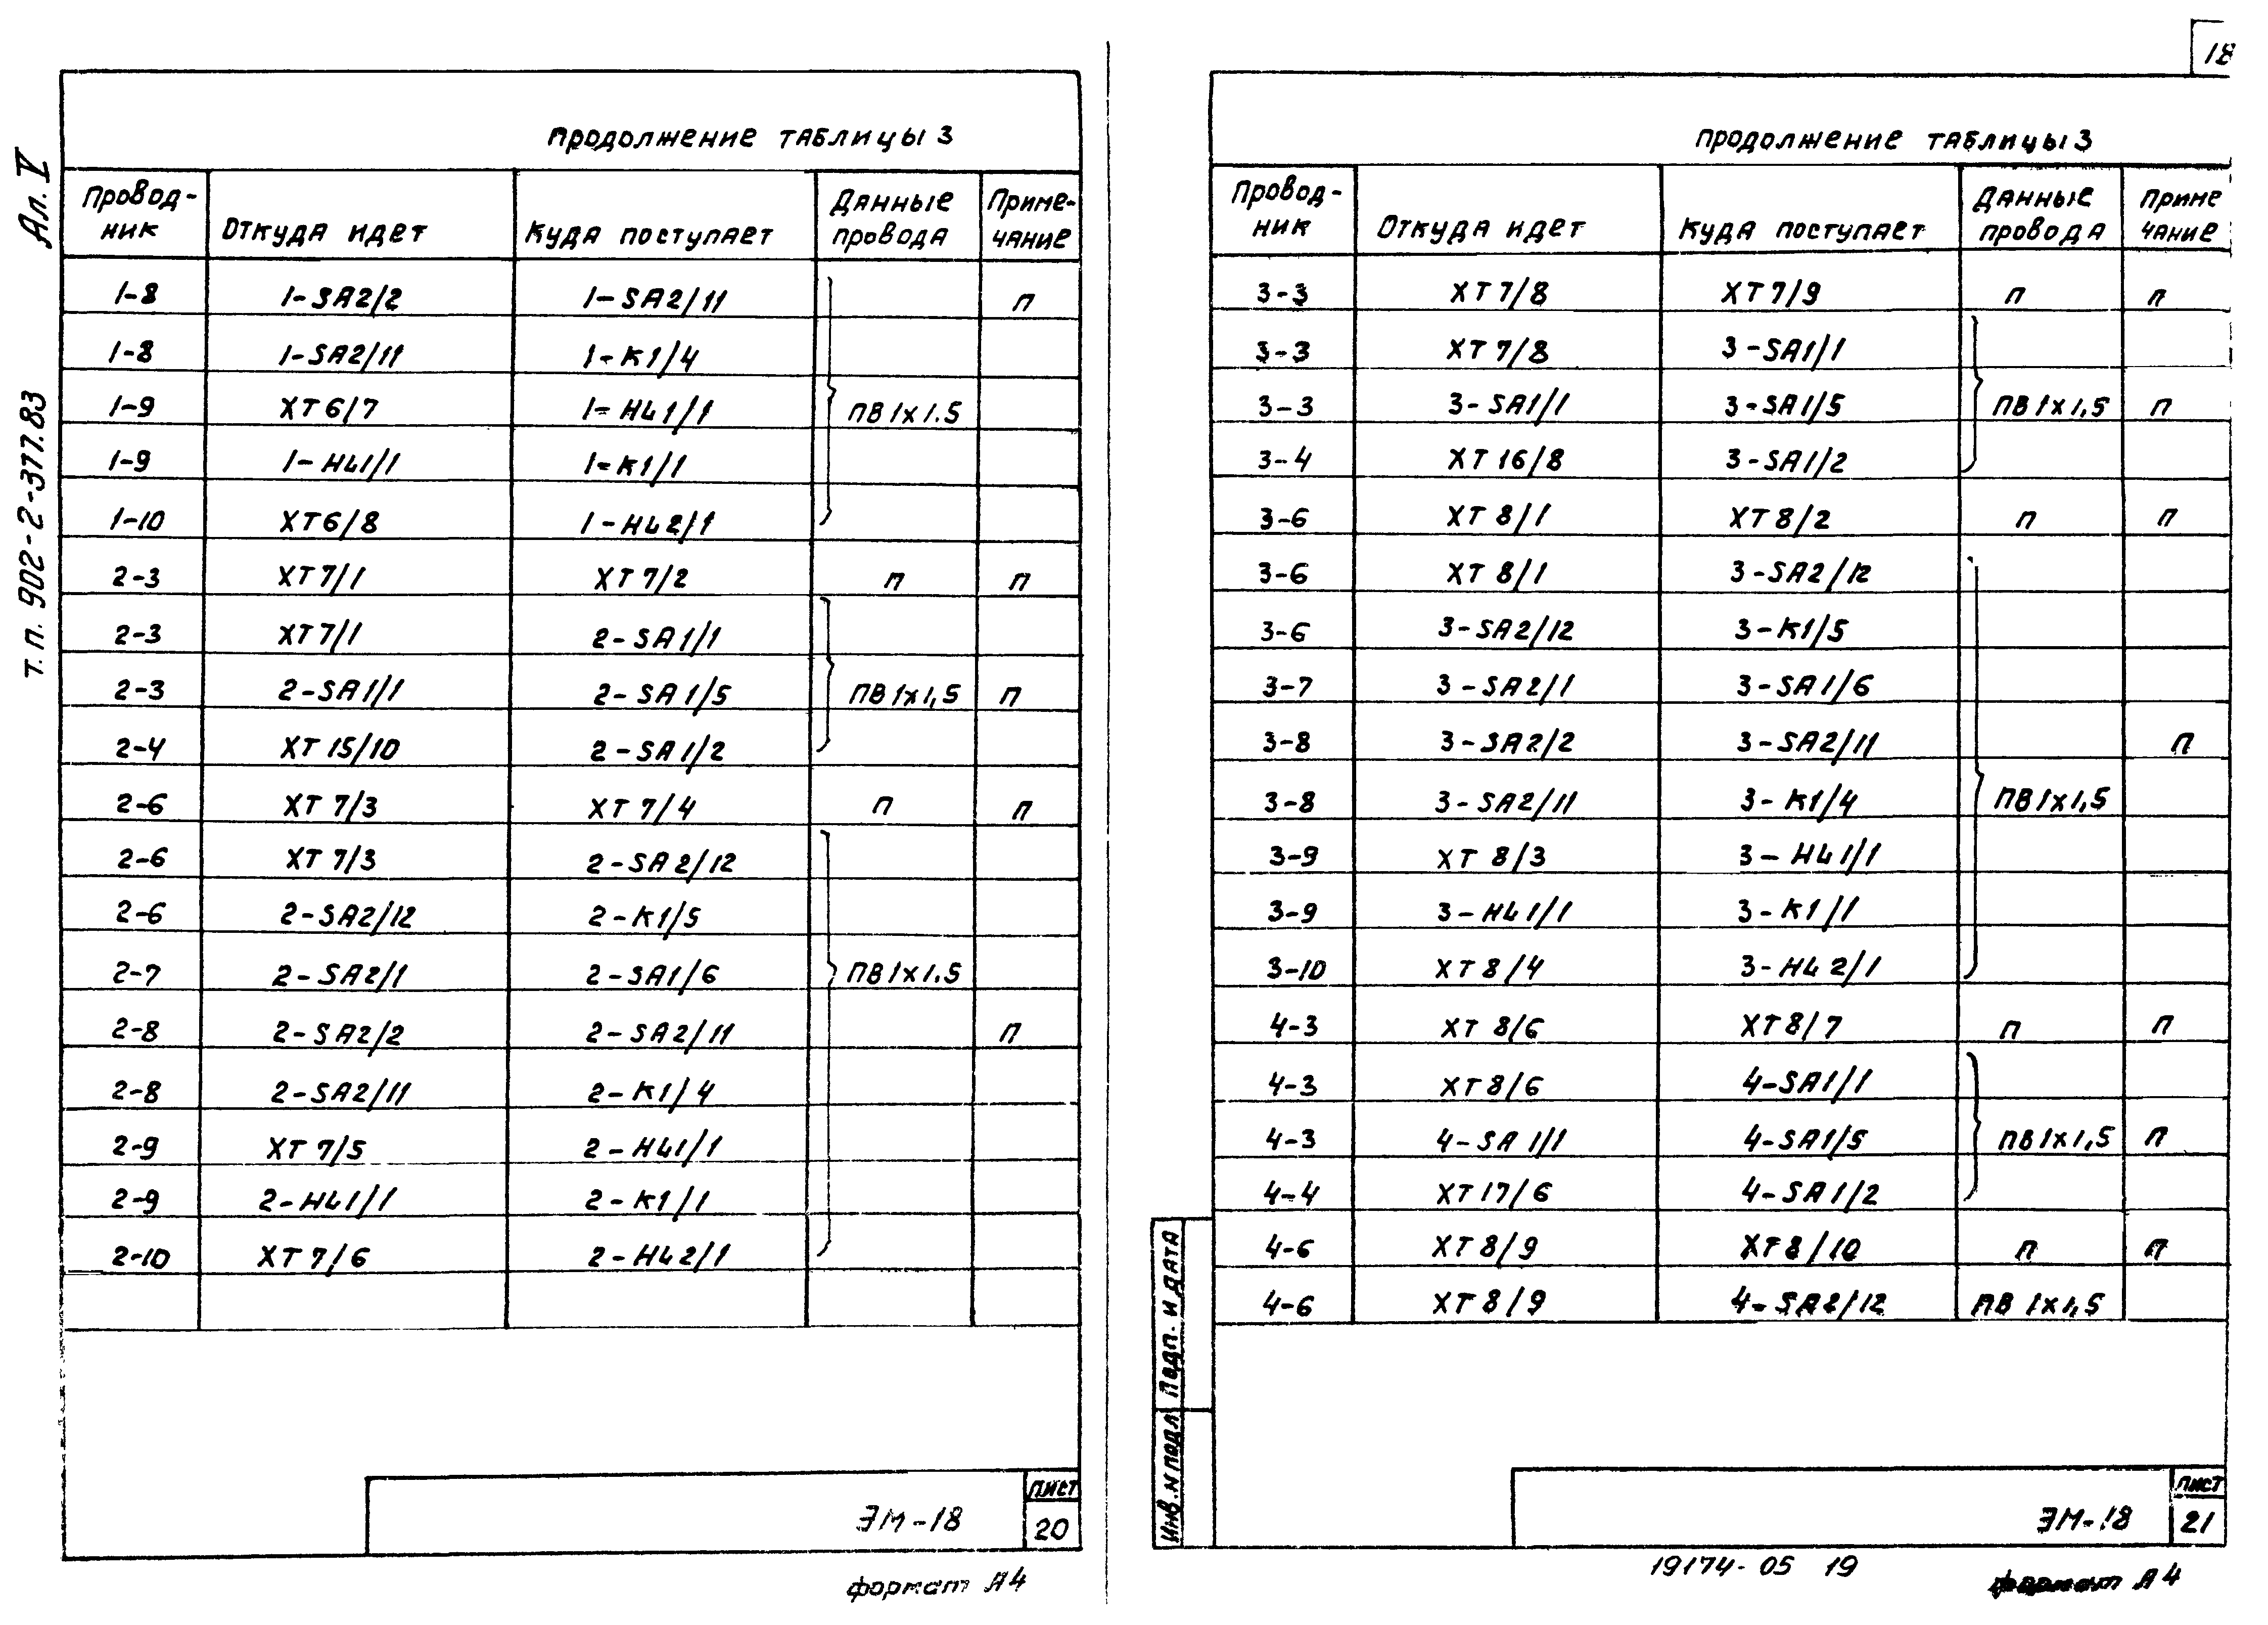 Ал. V
т.п. 902-2-377.83
Продолжение таблицы 3
Провод-ник Откуда идет Куда поступает Данные провода Приме-чание
1-8 1-SA2/2 1-SA2/11 п
1-8 1-SA2/11 1-K1/4
1-9 XT6/7 1-HL1/1 ПВ 1х1.5
1-9 1-HL1/1 1-K1/1
1-10 XT6/8 1-HL2/1
2-3 XT7/1 XT7/2 п п
2-3 XT7/1 2-SA1/1
2-3 2-SA1/1 2-SA1/5 ПВ 1х1,5 п
2-4 XT15/10 2-SA1/2
2-6 XT7/3 XT7/4 п п
2-6 XT7/3 2-SA2/12
2-6 2-SA2/12 2-K1/5
2-7 2-SA2/1 2-SA1/6 ПВ 1х1.5
2-8 2-SA2/2 2-SA2/11 п
2-8 2-SA2/11 2-K1/4
2-9 XT7/5 2-HL1/1
2-9 2-HL1/1 2-K1/1
2-10 XT7/6 2-HL2/1
ЭМ-18
Лист
20
формат А4
18
Продолжение таблицы 3
Провод-ник Откуда идет Куда поступает Данные провода Приме чание
3-3 XT7/8 XT7/9 п п
3-3 XT7/8 3-SA1/1
3-3 3-SA1/1 3-SA1/5 ПВ 1х1,5 п
3-4 XT16/8 3-SA1/2
3-6 XT8/1 XT8/2 п п
3-6 XT8/1 3-SA2/12
3-6 3-SA2/12 3-K1/5
3-7 3-SA2/1 3-SA1/6
3-8 3-SA2/2 3-SA2/11 п
3-8 3-SA2/11 3-K1/4 ПВ 1х1,5
3-9 XT8/3 3-HL1/1
3-9 3-HL1/1 3-K1/1
3-10 XT8/4 3-HL2/1
4-3 XT8/6 XT8/7 п п
4-3 XT8/6 4-SA1/1
4-3 4-SA1/1 4-SA1/5 ПВ 1х1,5 п
4-4 XT17/6 4-SA1/2
4-6 XT8/9 XT8/10 п п
4-6 XT8/9 4-SA2/12 ПВ 1х1,5
Подп. и дата
Инв. N подл
ЭМ-18
Лист
21
19174-05 19
формат А4